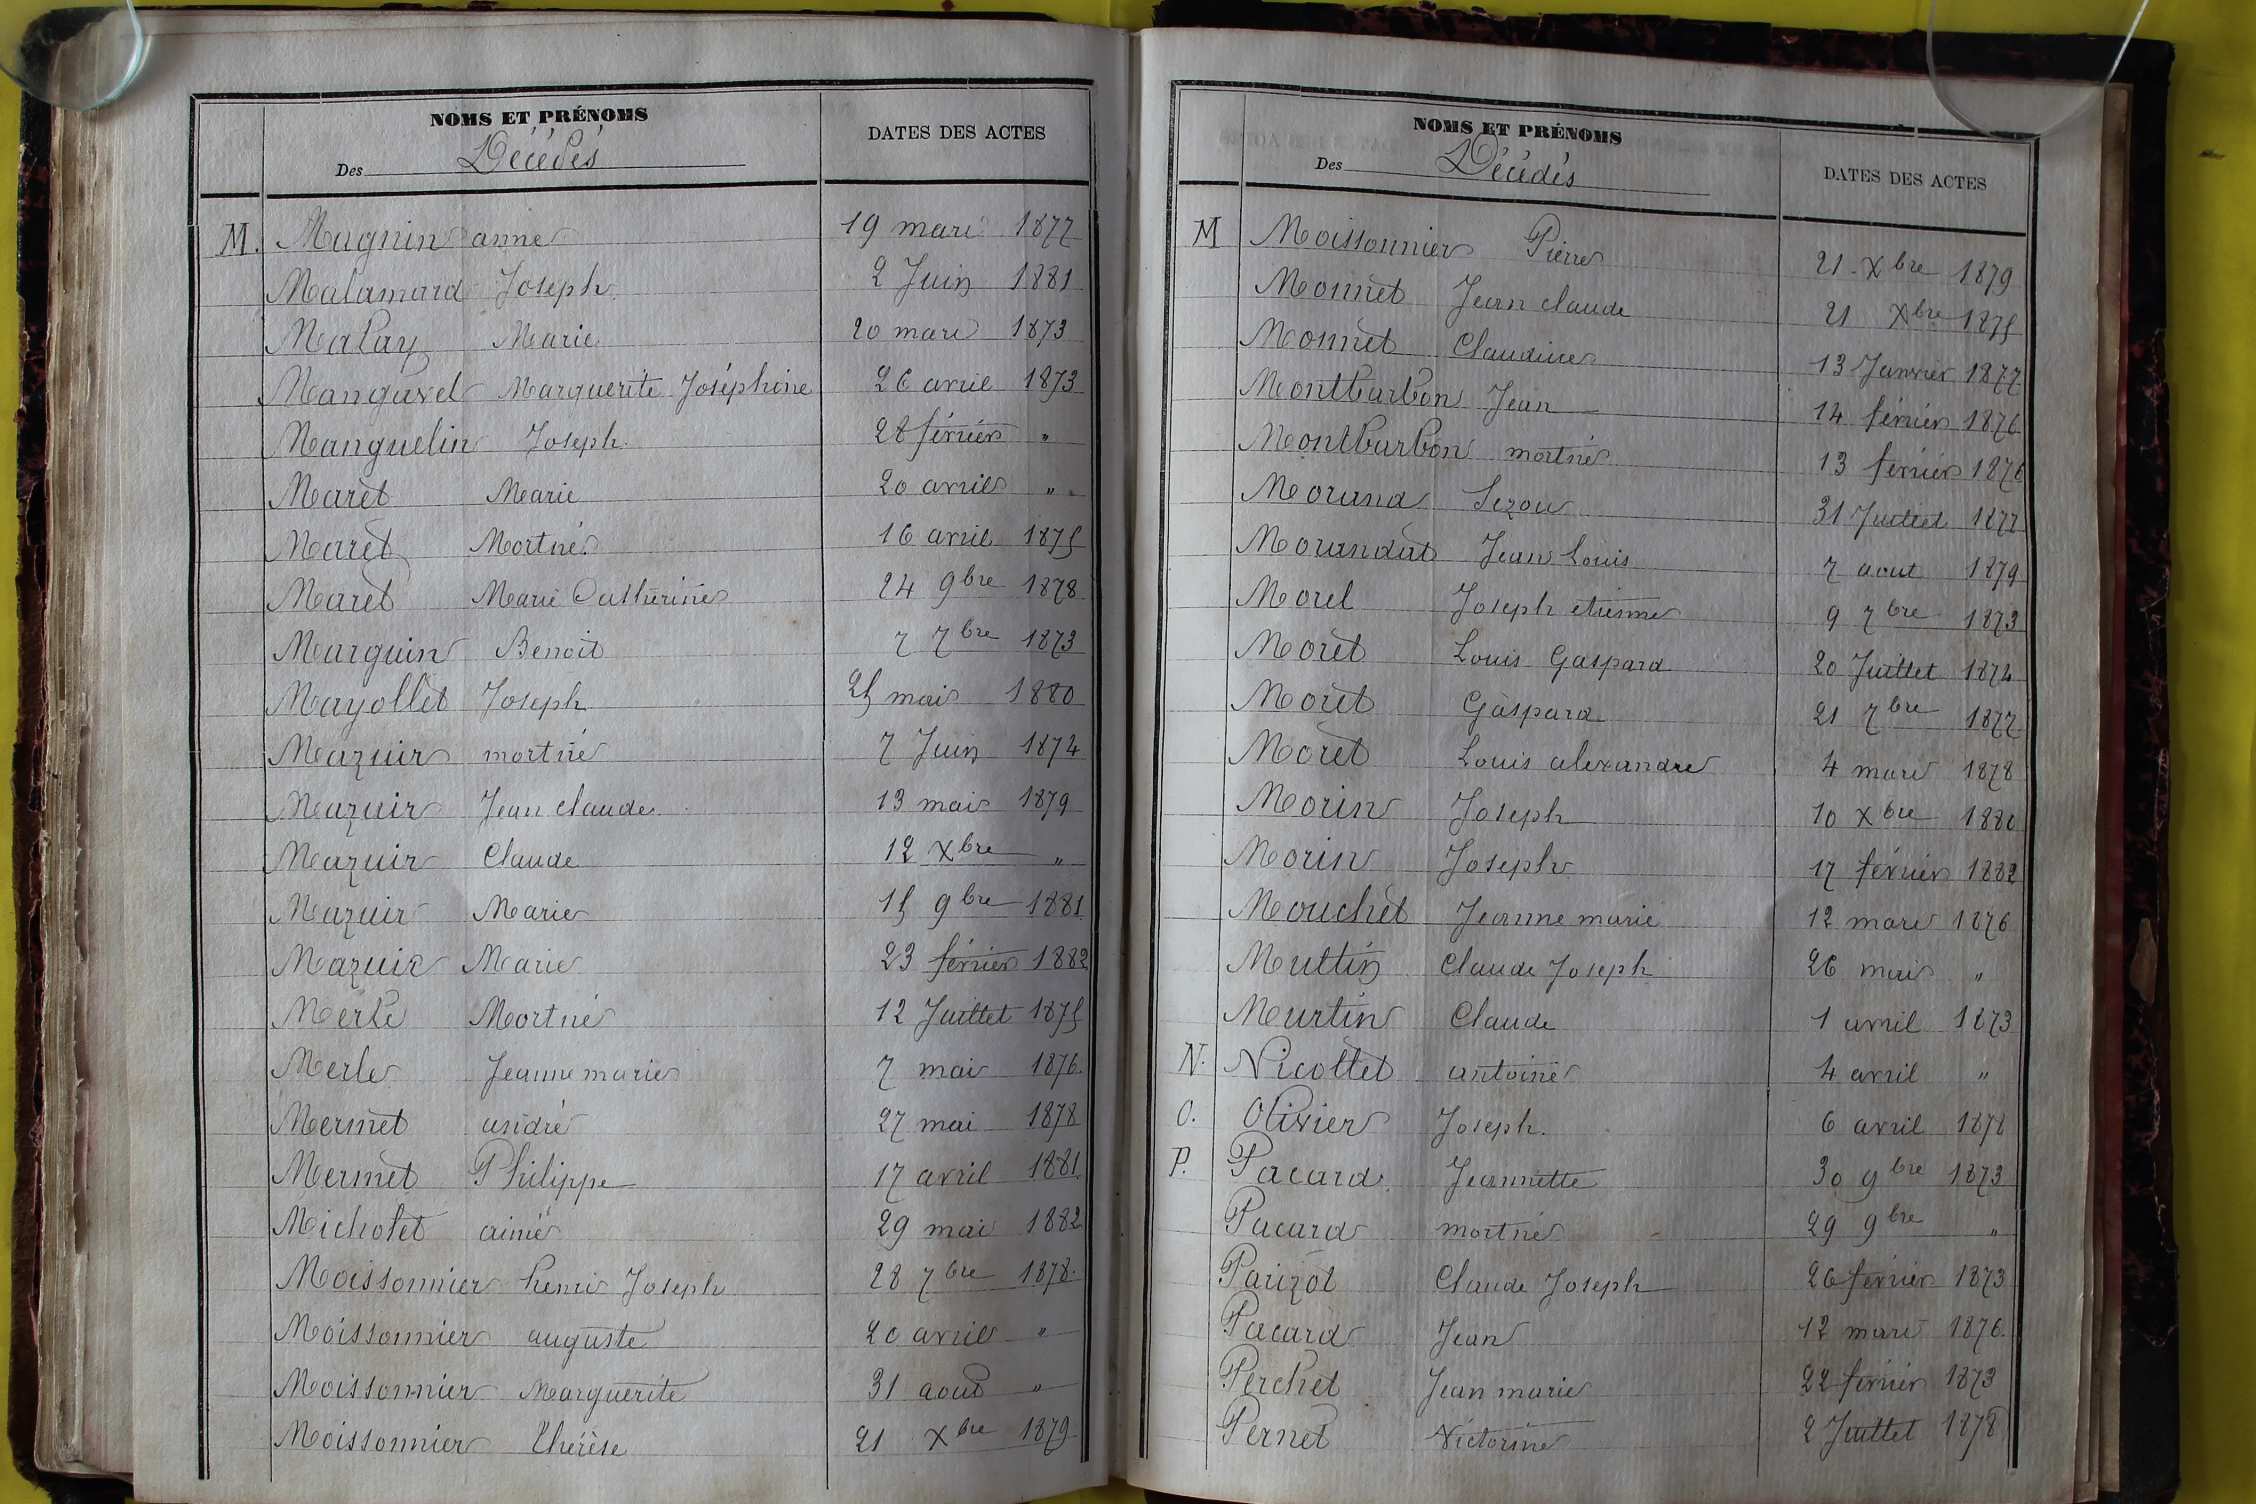 NOMS ET PRÉNOMS
DATES DES ACTES
Des Décédés
M. Magnin anne 19 mars 1877
Malamard Joseph 2 Juin 1881
Malay Marie 20 mars 1873
Mangavel Marguerite Joséphine 26 avril 1873
Manguelin Joseph 28 février "
Maret Marie 20 avril "
Maret Mortné 16 avril 1875
Maret Marie Catherine 24 9bre 1878
Marguin Benoit 7 7bre 1873
Mayollet Joseph 25 mai 1880
Mazuir mortné 7 Juin 1874
Mazuir Jean claude 13 mai 1879
Mazuir Claude 12 Xbre "
Mazuir Marie 15 9bre 1881
Mazuir Marie 23 février 1882
Merle Mortné 12 Juillet 1875
Merle Jeanne marie 7 mai 1876
Mermet andré 27 mai 1878
Mermet Philippe 17 avril 1881
Micholet aimé 29 mai 1882
Moissonnier henri Joseph 28 7bre 1878
Moissonnier auguste 20 avril "
Moissonnier Marguerite 31 aout "
Moissonnier Thérèse 21 Xbre 1879
NOMS ET PRÉNOMS
DATES DES ACTES
Des Décédés
M Moissonnier Pierre 21 Xbre 1879
Monnet Jean claude 21 Xbre 1875
Monnet Claudine 13 Janvier 1877
Montbarbon Jean 14 février 1876
Montbarbon mortné 13 février 1876
Morand 31 Juillet 1877
Morandat Jean Louis 7 aout 1879
Morel Joseph etienne 9 7bre 1873
Moret Louis Gaspard 20 Juillet 1874
Moret Gaspard 21 7bre 1877
Moret Louis alexandre 4 mars 1878
Morin Joseph 10 Xbre 1880
Morin Joseph 17 février 1882
Mouchet Jeanne marie 12 mars 1876
Multin Claude Joseph 26 mai "
Murtin Claude 1 avril 1873
N. Nicollet antoine 4 avril "
O. Olivier Joseph 6 avril 1878
P. Pacard Jeannette 30 9bre 1873
Pacard mortné 29 9bre "
Parizot Claude Joseph 26 février 1873
Pacard Jean 12 mars 1876
Perchet Jean marie 22 février 1873
Pernet Victorine 2 Juillet 1878